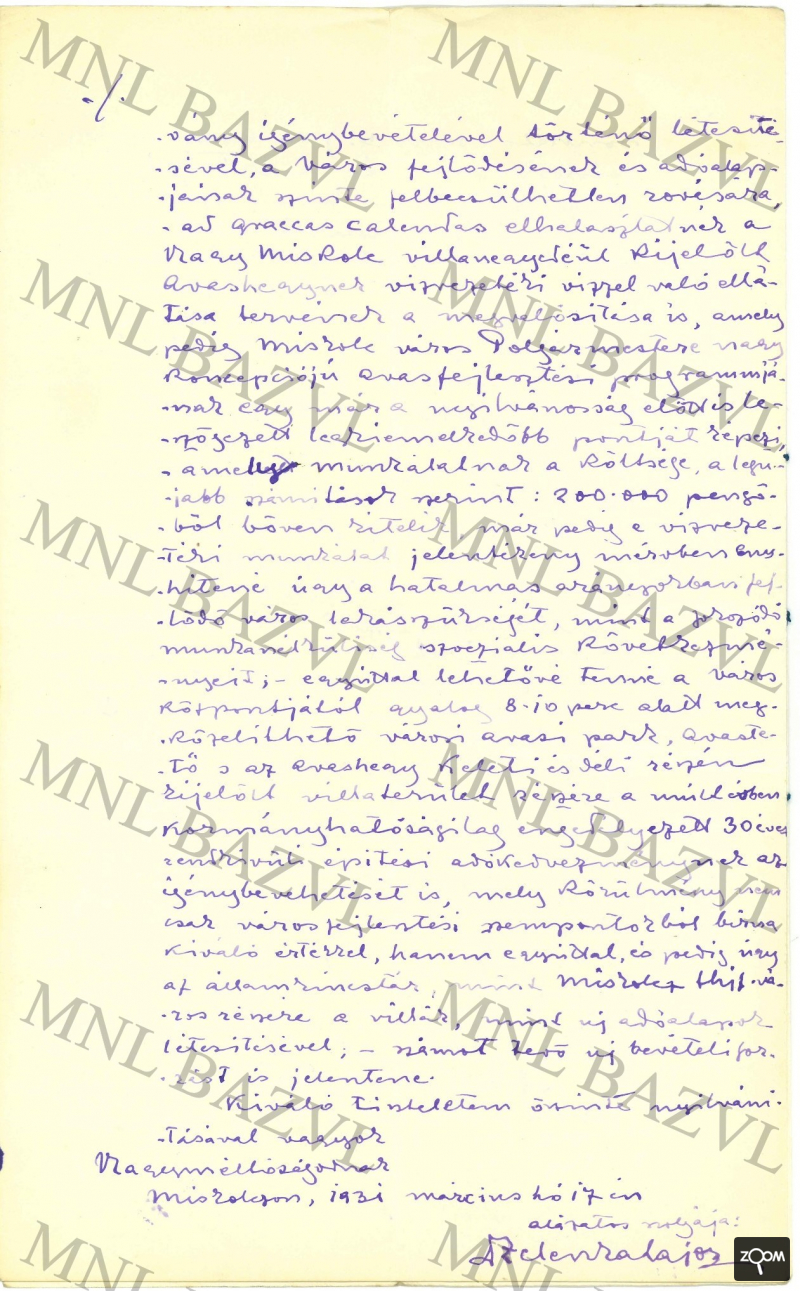 -/.
-vány igénybevételével történő létesíté-
-sével, a Város fejlődésének és adóalap-
-jának szinte felbecsülhetlen rovására,
-ad graecas calendas elhalasztatnék a
Nagy Miskolc villanegyedéül kijelölt
Avashegynek vízvezetéki vízzel való ellá-
tása tervének a megvalósítása is, amely
pedig Miskolc város Polgármestere nagy
koncepciójú avasfejlesztési programmjá-
nak egy már a nyilvánosság előtt is le-
-szögezett legkiemelkedőbb pontját képezi,
-amely munkálatnak a költsége, a legu-
-jabb számítások szerint: 200.000 pengő-
-ből bőven kitelik már pedig e vízveze-
-téki munkálat jelentékeny mérvben eny-
-hítené úgy a hatalmas arányokban fej-
-lődő város lakásszükségét, mint a
munkanélküliség szociális következmé-
-nyeit; - egyúttal lehetővé tenné a város
központjától gyalog 8-10 perc alatt meg-
-közelíthető városi avasi park, avaste-
-tő s az avashegy keleti és déli részén
kijelölt villaterület részére a múlt évben
kormányhatóságilag engedélyezett 30 éves
rendkívüli építési adókedvezménynek az
igénybevehetését is, mely körülmény nem
csak városfejlesztési szempontokból bírna
kiváló értékkel, hanem egyúttal, és pedig úgy
az államkincstár, mint Miskolcz thjf. vá-
-ros részére a villák, mint új adóalapok
létesítésével; - számot tevő új bevételi for-
-rást is jelentene.
Kiváló tiszteletem őszinte nyilvání-
-tásával vagyok
Nagyméltóságodnak
Miskolczon, 1931 március hó 17 én
alázatos szolgája:
Zelenka Lajos
MNL BAZVL
MNL BAZVL
MNL BAZVL
MNL BAZVL
MNL BAZVL
MNL BAZVL
MNL BAZVL
MNL BAZVL
MNL BAZVL
MNL BAZVL
MNL BAZVL
MNL BAZVL
ZOOM